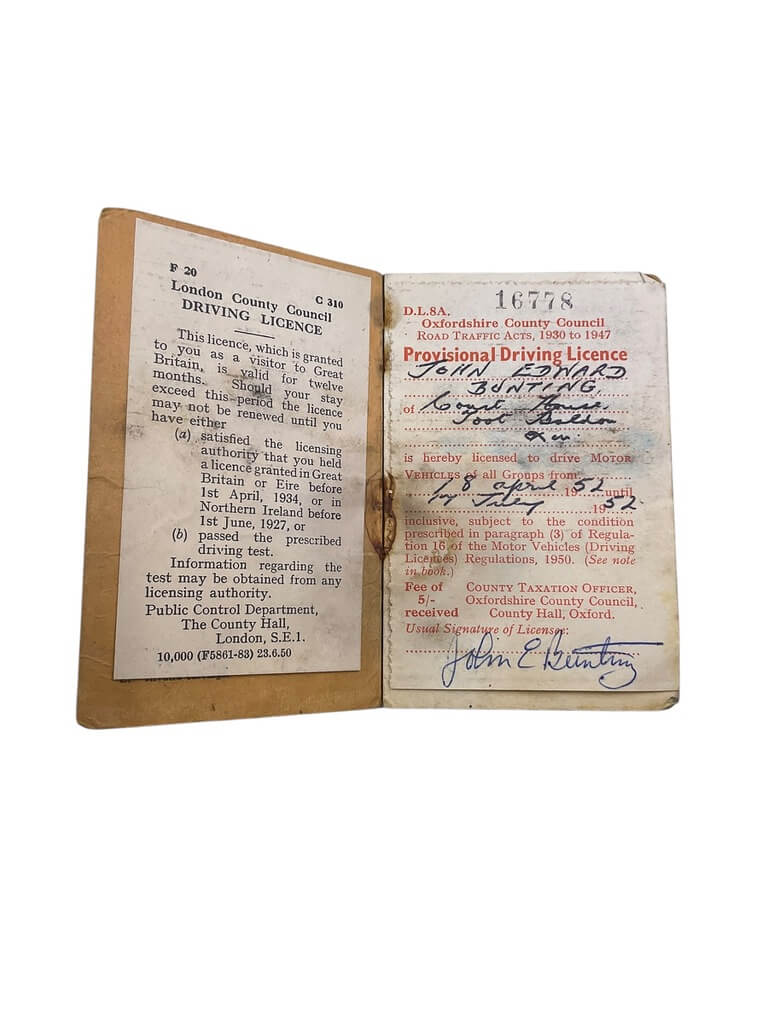 F 20
C 310
London County Council
DRIVING LICENCE
This licence, which is granted
to you as a visitor to Great
Britain, is valid for twelve
months. Should your stay
exceed this period the licence
may not be renewed until you
have either
(a) satisfied the licensing
authority that you held
a licence granted in Great
Britain or Eire before
1st April, 1934, or in
Northern Ireland before
1st June, 1927, or
(b) passed the prescribed
driving test.
Information regarding the
test may be obtained from any
licensing authority.
Public Control Department,
The County Hall,
London, S.E.1.
10,000 (F5861-83) 23.6.50
16778
D.L.8A.
Oxfordshire County Council
ROAD TRAFFIC ACTS, 1930 to 1947
Provisional Driving Licence
JOHN EDWARD
BUNTING
of Court House
Toot Baldon
is hereby licensed to drive MOTOR
VEHICLES of all Groups from
8 april 1952 until
July 1952
inclusive, subject to the condition
prescribed in paragraph (3) of Regula-
tion 16 of the Motor Vehicles (Driving
Licences) Regulations, 1950. (See note
in book.)
Fee of
5/-
received
COUNTY TAXATION OFFICER,
Oxfordshire County Council,
County Hall, Oxford.
Usual Signature of Licensee:
John E Bunting